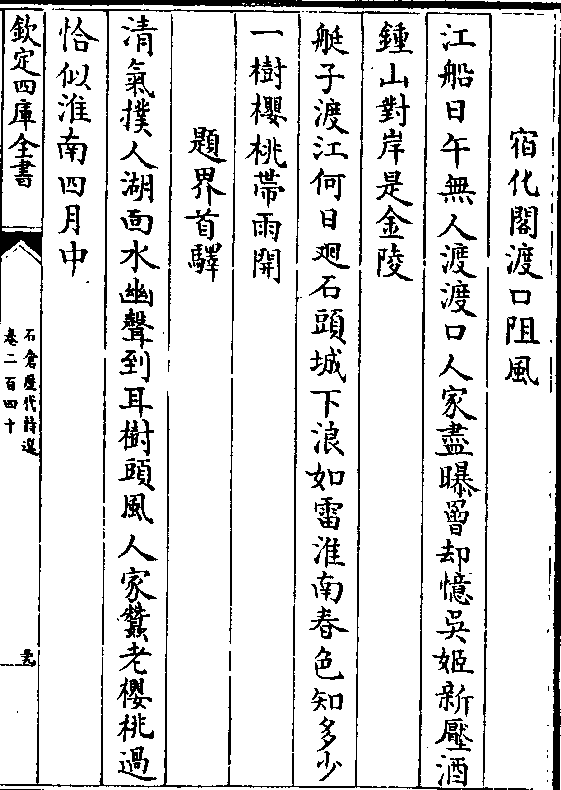 宿化閣渡口阻風
江船日午無人渡渡口人家盡曝罾却憶吳姬新壓酒
鍾山對岸是金陵
艇子渡江何日廻石頭城下浪如雷淮南春色知多少
一樹櫻桃帶雨開
題界首驛
清氣撲人湖面水幽聲到耳樹頭風人家蠶老櫻桃過
恰似淮南四月中
欽定四庫全書
石倉歷代詩選
卷二百四十